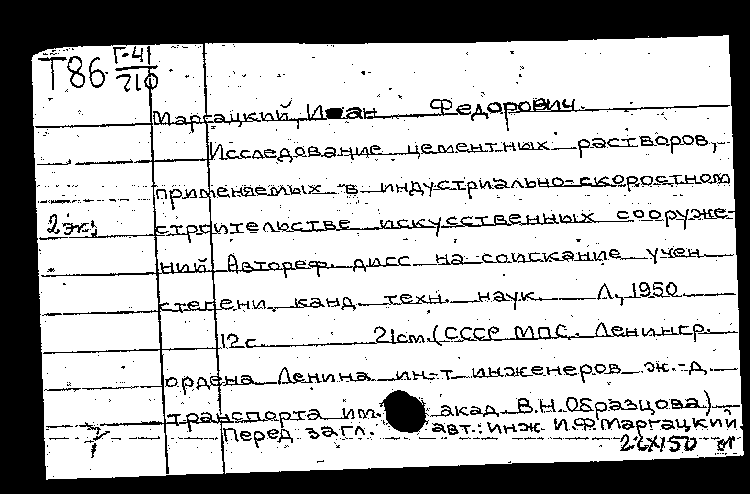 Т86 Г-41
210
Маргацкий, Иван Федорович.
Исследование цементных растворов,
применяемых в индустриально-скоростном
2 экз строительстве искусственных сооруже-
ний Автореф. дисс на соискание учен
степени канд. техн. наук. Л., 1950
12 с. 21 cm. (СССР МПС. Ленингр.
ордена Ленина ин-т инженеров ж.-д.
транспорта им. акад. В.Н.Образцова)
Перед загл. авт.: инж. И.Ф Маргацкий.